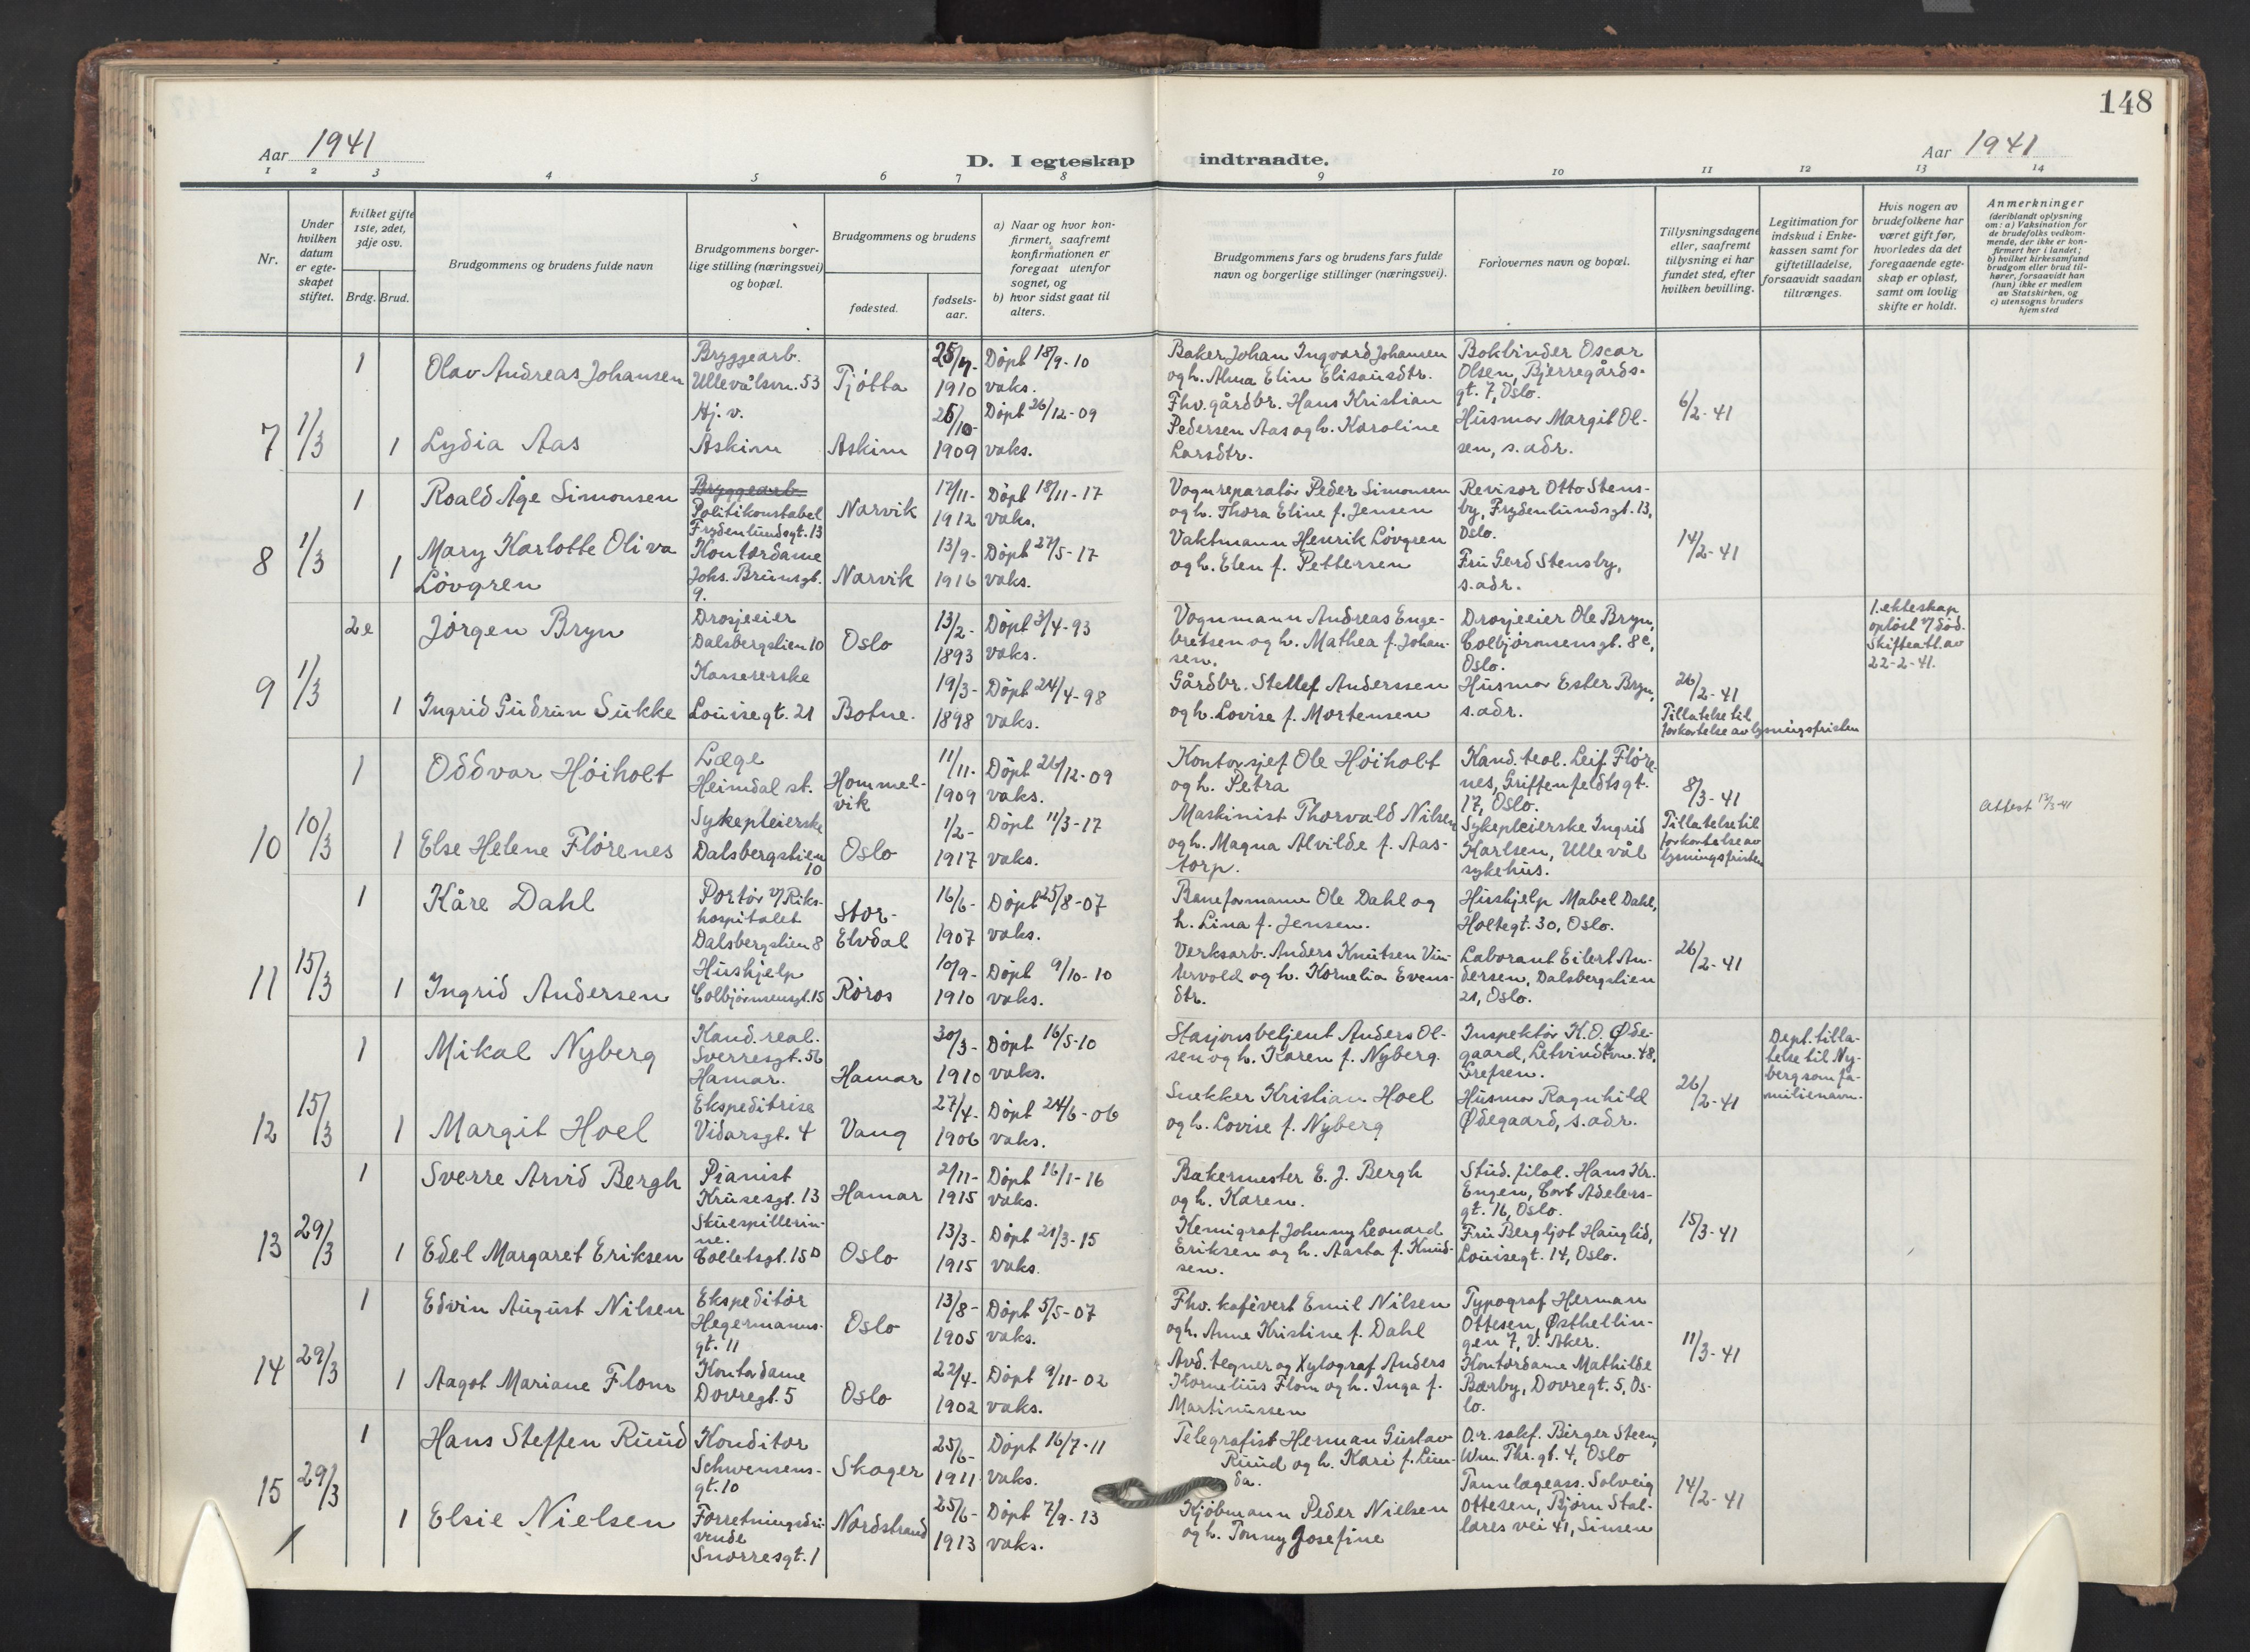 148
Aar 1941
D. I egteskap indtraadte.
Aar 1941
1 2 3 4 5 6 7 8 9 10 11 12 13 14
Nr.
Under
hvilken
datum
er egte-
skapet
stiftet.
Hvilket gifte
1ste, 2det,
3dje osv.
Brdg. Brud.
Brudgommens og brudens fulde navn
Brudgommens borger-
lige stilling (næringsvei)
og bopæl.
Brudgommens og brudens
fødested.
fødsels-
aar.
a) Naar og hvor kon-
firmert, saafremt
konfirmationen er
foregaat utenfor
sognet, og
b) hvor sidst gaat til
alters.
Brudgommens fars og brudens fars fulde
navn og borgerlige stillinger (næringsvei).
Forlovernes navn og bopæl.
Tillysningsdagene
eller, saafremt
tillysning ei har
fundet sted, efter
hvilken bevilling.
Legitimation for
indskud i Enke-
kassen samt for
giftetilladelse,
forsaavidt saadan
tiltrænges.
Hvis nogen av
brudefolkene har
været gift før,
hvorledes da det
foregaaende egte-
skap er opløst,
samt om lovlig
skifte er holdt.
Anmerkninger
(deriblandt oplysning
om: a) Vaksination for
de brudefolks vedkom-
mende, der ikke er kon-
firmert her i landet;
b) hvilket kirkesamfund
brudgom eller brud til-
hører, forsaavidt han
(hun) ikke er medlem
av Statskirken, og
c) utensogns bruders
hjemsted
7 1/3
1 Olav Andreas Johansen
Bryggearb.
Ullevålsvn. 53
Tjøtta
1910
Døpt 18/9-10
vaks.
Baker Johan Ingvard Johansen
og h. Alma Elin Elisausdtr.
Bokbinder Oscar
Olsen, Bjerregårds-
gt. 7, Oslo.
1 Lydia Aas
Hj. v.
Askim
Askim
1909
Døpt 26/12-09
vaks.
Fhv. gårdbr. Hans Kristian
Pedersen Aas og h. Karoline
Larsdtr.
Husmor Margit Ol-
sen, s. adr.
6/2-41
8 1/3
1 Roald Åge Simonsen
Bryggearb.
Politikonstabel
Frydenlundsgt. 13
Narvik
17/11-
1912
Døpt 18/11-17
vaks.
Vognreparatør Peder Simonsen
og h. Thora Eline f. Jensen
Revisor Otto Stens-
by, Frydenlundsgt. 13,
Oslo.
1 Mary Karlotte Oliva
Løvgren
Kontordame
Johs. Brunsgt.
9.
Narvik
13/9-
1916
Døpt 27/5-17
vaks.
Vaktmann Henrik Løvgren
og h. Elen f. Pettersen
Fru Gerd Stensby,
s. adr.
14/2-41
9 1/3
2e Jørgen Bryn
Drosjeeier
Dalsbergstien 10
Oslo
13/2-
1893
Døpt 3/4-93
vaks.
Vognmann Andreas Enge-
bretsen og h. Mathea f. Johan-
sen.
Drosjeeier Ole Bryn,
Colbjørnsensgt. 8c,
Oslo.
1. ekteskap
opløst v/ død.
Skifteatt. av
22-2-41.
1 Ingrid Gudrun Sukke
Kassererske
Louisegt. 21
Botne.
19/3-
1898
Døpt 24/4-98
vaks.
Gårdbr. Stellef Anderssen
og h. Lovise f. Mortensen
Husmor Ester Bryn,
s. adr.
26/2-41
Tillatelse til
forkortelse av lysningsfristen
10 10/3
1 Oddvar Høiholt
Læge
Heimdal st.
Hommel-
vik
11/11-
1909
Døpt 26/12-09
vaks.
Kontorsjef Ole Høiholt
og h. Petra
Kand. teol. Leif Fløre-
nes, Griffenfeldtsgt.
17, Oslo.
1 Else Helene Flørenes
Sykepleierske
Dalsbergstien
10
Oslo
1/2-
1917
Døpt 11/3-17
vaks.
Maskinist Thorvald Nilsen
og h. Magna Alvilde f. Aas-
torp.
Sykepleierske Ingrid
Karlsen, Ullevål
sykehus.
8/3-41
Tillatelse til
forkortelse av
lysningsfristen
Attest 12/3-41
11 15/3
1 Kåre Dahl
Portør v/ Riks-
hospitalet
Dalsbergstien 8
Stor-
Elvdal
16/6-
1907
Døpt 25/8-07
vaks.
Baneformann Ole Dahl og
h. Lina f. Jensen.
Hushjelp Mabel Dahl,
Holtegt. 30, Oslo.
1 Ingrid Andersen
Hushjelp
Colbjørnsensgt. 15
Røros
10/9-
1910
Døpt 9/10-10
vaks.
Verksarb. Anders Knutsen Vin-
tervold og h. Kornelia Evens-
dtr.
Laborant Eilert An-
dersen, Dalsbergstien
21, Oslo.
26/2-41
12 15/3
1 Mikal Nyberg
Kand. real.
Sverresgt. 56
Hamar.
Hamar
30/3-
1910
Døpt 16/5-10
vaks.
Stasjonsbetjent Anders Ol-
sen og h. Karen f. Nyberg.
Inspektør K. O. Øde-
gaard, Letvindtvn. 48,
Grefsen.
Dept. tilla-
telse til Ny-
berg som fa-
milienavn.
1 Margit Hoel
Ekspeditrise
Vidarsgt. 4
Vang
27/4-
1906
Døpt 24/6-06
vaks.
Snekker Kristian Hoel
og h. Lovise f. Nyberg
Husmor Ragnhild
Ødegaard, s. adr.
26/2-41
13 29/3
1 Sverre Arvid Bergh
Pianist
Krusesgt. 13
Hamar
2/11-
1915
Døpt 16/1-16
vaks.
Bakermester E. J. Bergh
og h. Karen.
Stud. filol. Hans Kr.
Engen, Cort Adelers-
gt. 16, Oslo.
1 Edel Margaret Eriksen
Skuespillerin-
ne.
Colletsgt. 15D
Oslo
13/3-
1915
Døpt 21/3-15
vaks.
Kemigraf Johnny Leonard
Eriksen og h. Aasta f. Knud-
sen.
Fru Bergljot Hauglid,
Louisegt. 14, Oslo.
15/3-41
14 29/3
1 Edvin August Nilsen
Ekspeditør
Hegermanns-
gt. 11
Oslo
13/8-
1905
Døpt 5/5-07
vaks.
Fhv. kafévert Emil Nilsen
og h. Anne Kristine f. Dahl
Typograf Herman
Ottesen, Østhellin-
gen 7, V. Aker.
1 Aagot Mariane Flom
Kontordame
Dovregt. 5
Oslo
22/4-
1902
Døpt 9/11-02
vaks.
Avd. tegner og Xylograf Anders
Kornelius Flom og h. Inga f.
Martinussen
Kontordame Mathilde
Bærby, Dovregt. 5, Os-
lo.
11/3-41
15 29/3
1 Hans Steffen Ruud
Konditor
Schwensens-
gt. 10
Skoger
25/6-
1911
Døpt 16/7-11
vaks.
Telegrafist Herman Gustav
Ruud og h. Kari f. Lun-
da.
O.r. sakf. Birger Steen,
Wm. Thr. gt. 4, Oslo
1 Elsie Nielsen
Forretningsdri-
vende
Snorresgt. 1
Nordstrand
25/6-
1913
Døpt 7/9-13
vaks.
Kjøbmann Peder Nielsen
og h. Tonny Josefine
Tannlægeass. Solveig
Ottesen, Bjørn Stal-
lares vei 41, Sinsen
14/2-41